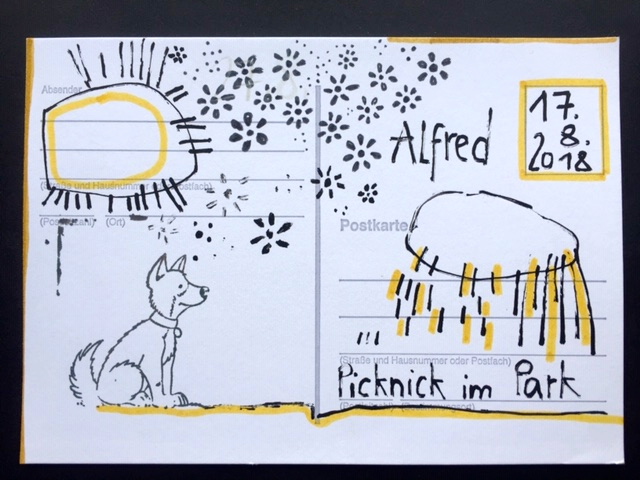 Absender
(Straße und Hausnummer oder Postfach)
(Ort)
Alfred
17.
8.
2018
Postkarte
(Straße und Hausnummer oder Postfach)
Picknick im Park